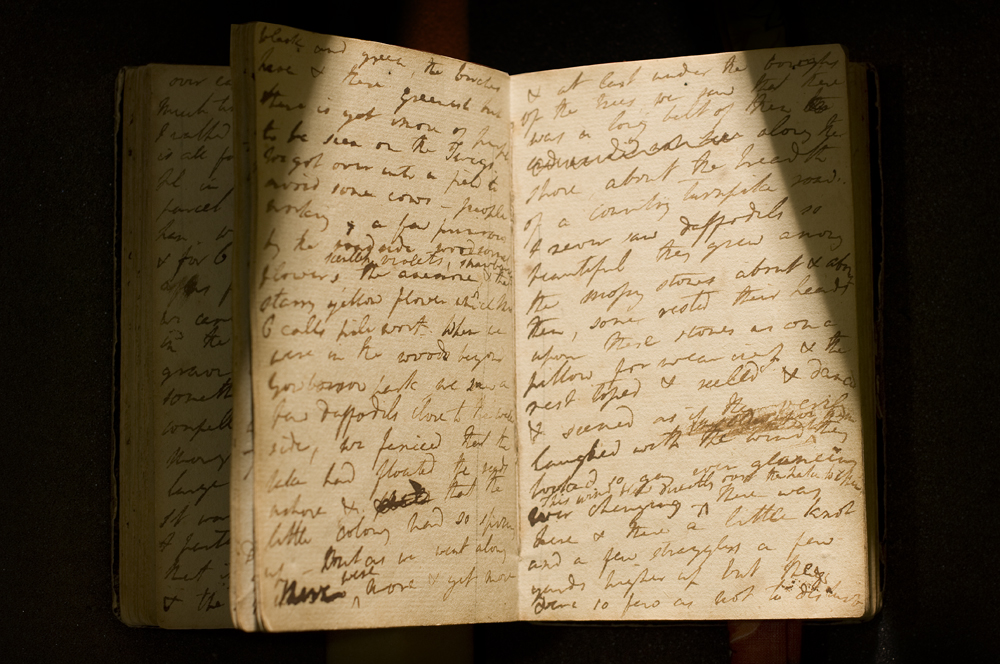 over
much
I
is all fo
parcel
& for C
we cam
in the
grave
someth
compell
large
It was
that i
& the
black and green, the birches
here & there greenish but
there is yet more of purple
to be seen on the Twigs.
We got over into a field to
avoid some cows — people
working, a few primroses
by the roadside, woodsorrel
scentless violets, strawberries
flowers, the anemone, & the
starry yellow flower which Mrs
C calls pile wort. When we
were in the woods beyond
Gowbarrow park we saw a
few daffodils close to the water
side, we fancied that the
lake had floated the seeds
ashore & that the
little colony had so sprung
up — But as we went along
there were more & yet more
& at last under the boughs
of the trees we saw that there
was a long belt of them
along the
shore about the breadth
of a country turnpike road.
I never saw daffodils so
beautiful they grew among
the mossy stones about & about
them, some rested their heads
upon these stones as on a
pillow for weariness & the
rest tossed & reeled & danced
& seemed as if they verily
laughed with the wind they
looked so gay ever glancing
This wind blew directly over the lake to them
ever changing
There was
here & there a little knot
and a few stragglers a few
yards higher up but they
were so few as not to disturb